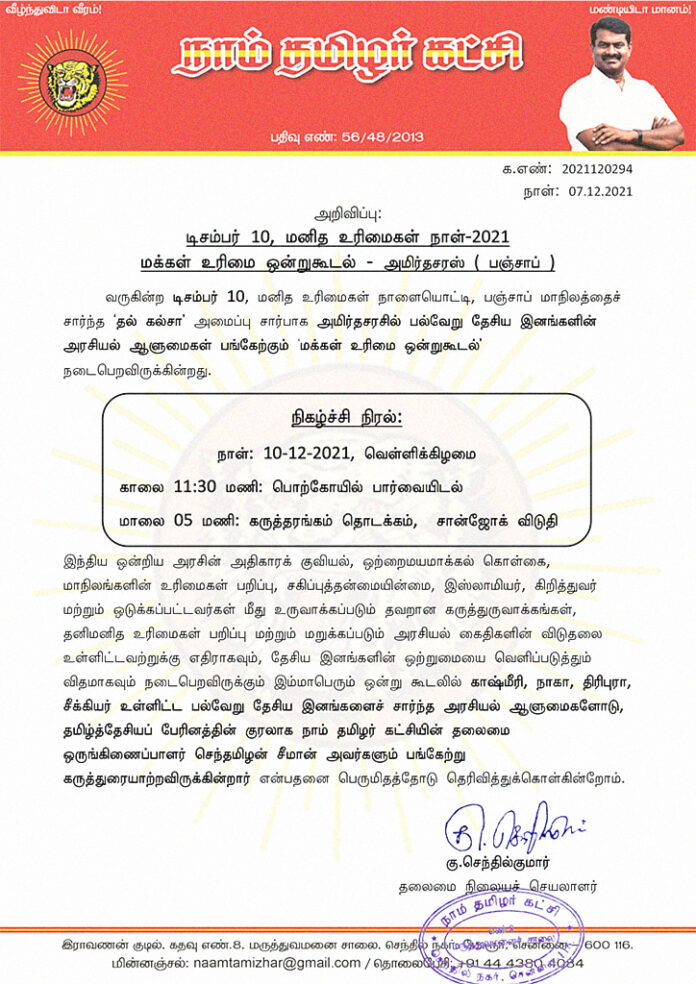 வீழ்ந்துவிடா வீரம்!
மண்டியிடா மானம்!
நாம் தமிழர் கட்சி
பதிவு எண்: 56/48/2013
க.எண்: 2021120294
நாள்: 07.12.2021
அறிவிப்பு:
டிசம்பர் 10, மனித உரிமைகள் நாள்-2021
மக்கள் உரிமை ஒன்றுகூடல் - அமிர்தசரஸ் ( பஞ்சாப் )
வருகின்ற டிசம்பர் 10, மனித உரிமைகள் நாளையொட்டி, பஞ்சாப் மாநிலத்தைச்
சார்ந்த 'தல் கல்சா' அமைப்பு சார்பாக அமிர்தசரசில் பல்வேறு தேசிய இனங்களின்
அரசியல் ஆளுமைகள் பங்கேற்கும் 'மக்கள் உரிமை ஒன்றுகூடல்'
நடைபெறவிருக்கின்றது.
நிகழ்ச்சி நிரல்:
நாள்: 10-12-2021, வெள்ளிக்கிழமை
காலை 11:30 மணி: பொற்கோயில் பார்வையிடல்
மாலை 05 மணி: கருத்தரங்கம் தொடக்கம், சான்ஜோக் விடுதி
இந்திய ஒன்றிய அரசின் அதிகாரக் குவியல், ஒற்றைமயமாக்கல் கொள்கை,
மாநிலங்களின் உரிமைகள் பறிப்பு, சகிப்புத்தன்மையின்மை, இஸ்லாமியர், கிறித்துவர்
மற்றும் ஒடுக்கப்பட்டவர்கள் மீது உருவாக்கப்படும் தவறான கருத்துருவாக்கங்கள்,
தனிமனித உரிமைகள் பறிப்பு மற்றும் மறுக்கப்படும் அரசியல் கைதிகளின் விடுதலை
உள்ளிட்டவற்றுக்கு எதிராகவும், தேசிய இனங்களின் ஒற்றுமையை வெளிப்படுத்தும்
விதமாகவும் நடைபெறவிருக்கும் இம்மாபெரும் ஒன்று கூடலில் காஷ்மீரி, நாகா, திரிபுரா,
சீக்கியர் உள்ளிட்ட பல்வேறு தேசிய இனங்களைச் சார்ந்த அரசியல் ஆளுமைகளோடு,
தமிழ்த்தேசியப் பேரினத்தின் குரலாக நாம் தமிழர் கட்சியின் தலைமை
ஒருங்கிணைப்பாளர் செந்தமிழன் சீமான் அவர்களும் பங்கேற்று
கருத்துரையாற்றவிருக்கின்றார் என்பதனை பெருமிதத்தோடு தெரிவித்துக்கொள்கின்றோம்.
கு.செந்தில்குமார்
தலைமை நிலையச் செயலாளர்
நாம் தமிழர் கட்சி
இராவணன் குடில். கதவு எண்.8. மருத்துவமனை சாலை. செந்தில் நகர். சென்னை – 600 116.
மின்னஞ்சல்: naamtamizhar@gmail.com / தொலைபேசி: +91 44 4380 4084